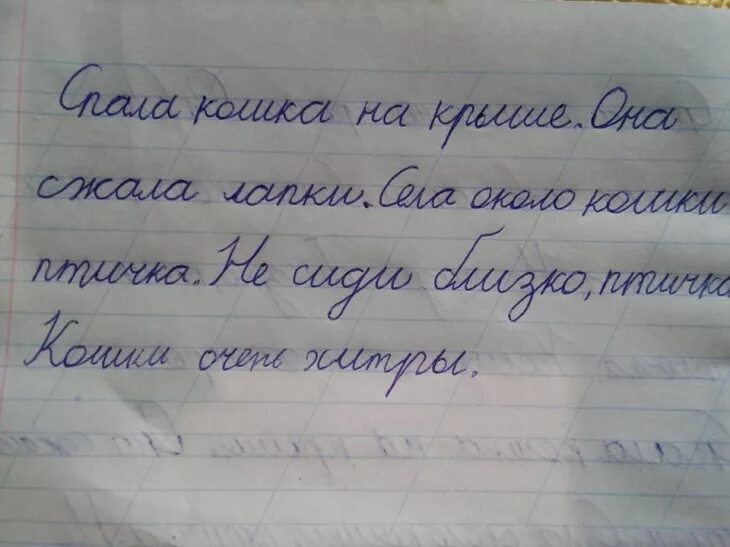 Спала кошка на крыше. Она
сжала лапки. Села около кошки
птичка. Не сиди близко, птичка
Кошки очень хитры.